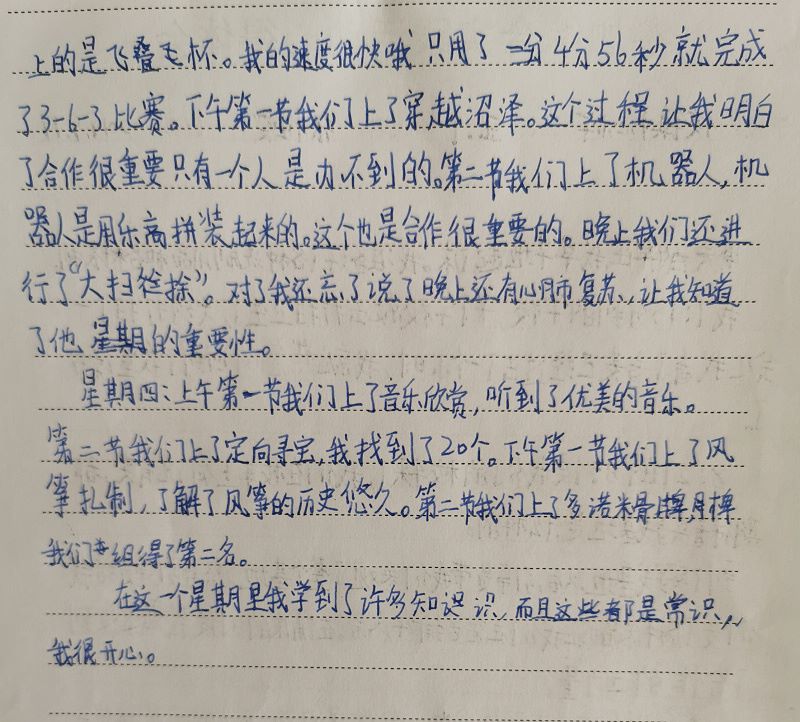 上的是飞叠飞杯。我的速度很快哦 只用了 二分4分56秒就完成
了3-6-3比赛。下午第一节我们上了穿越沼泽。这个过程 让我明白
了合作很重要只有一个人是办不到的。第二节我们上了机器人，机
器人是用乐高拼装起来的。这个也是合作很重要的。晚上我们还进
行了“大扫除”。对了我还忘了说了晚上还有心肺复苏、让我知道
了他 星期的重要性。
星期四：上午第一节我们上了音乐欣赏，听到了优美的音乐。
第二节我们上了定向寻宝，我找到了20个。下午第一节我们上了风
筝扎制，了解了风筝的历史悠久。第二节我们上了多诺米骨牌，
我们组得了第二名。
在这一个星期里我学到了许多知识 识，而且这些都是常识，
我很开心。